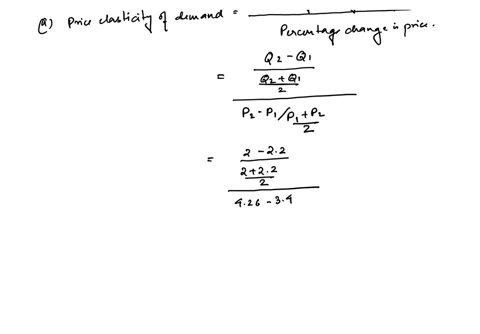 (a) Price elasticity of demand =
Percentage change in price.
= Q2 - Q1
Q2 + Q1
2
P2 - P1 / P1 + P2
2
= 2 - 2.2
2 + 2.2
2
4.26 - 3.4